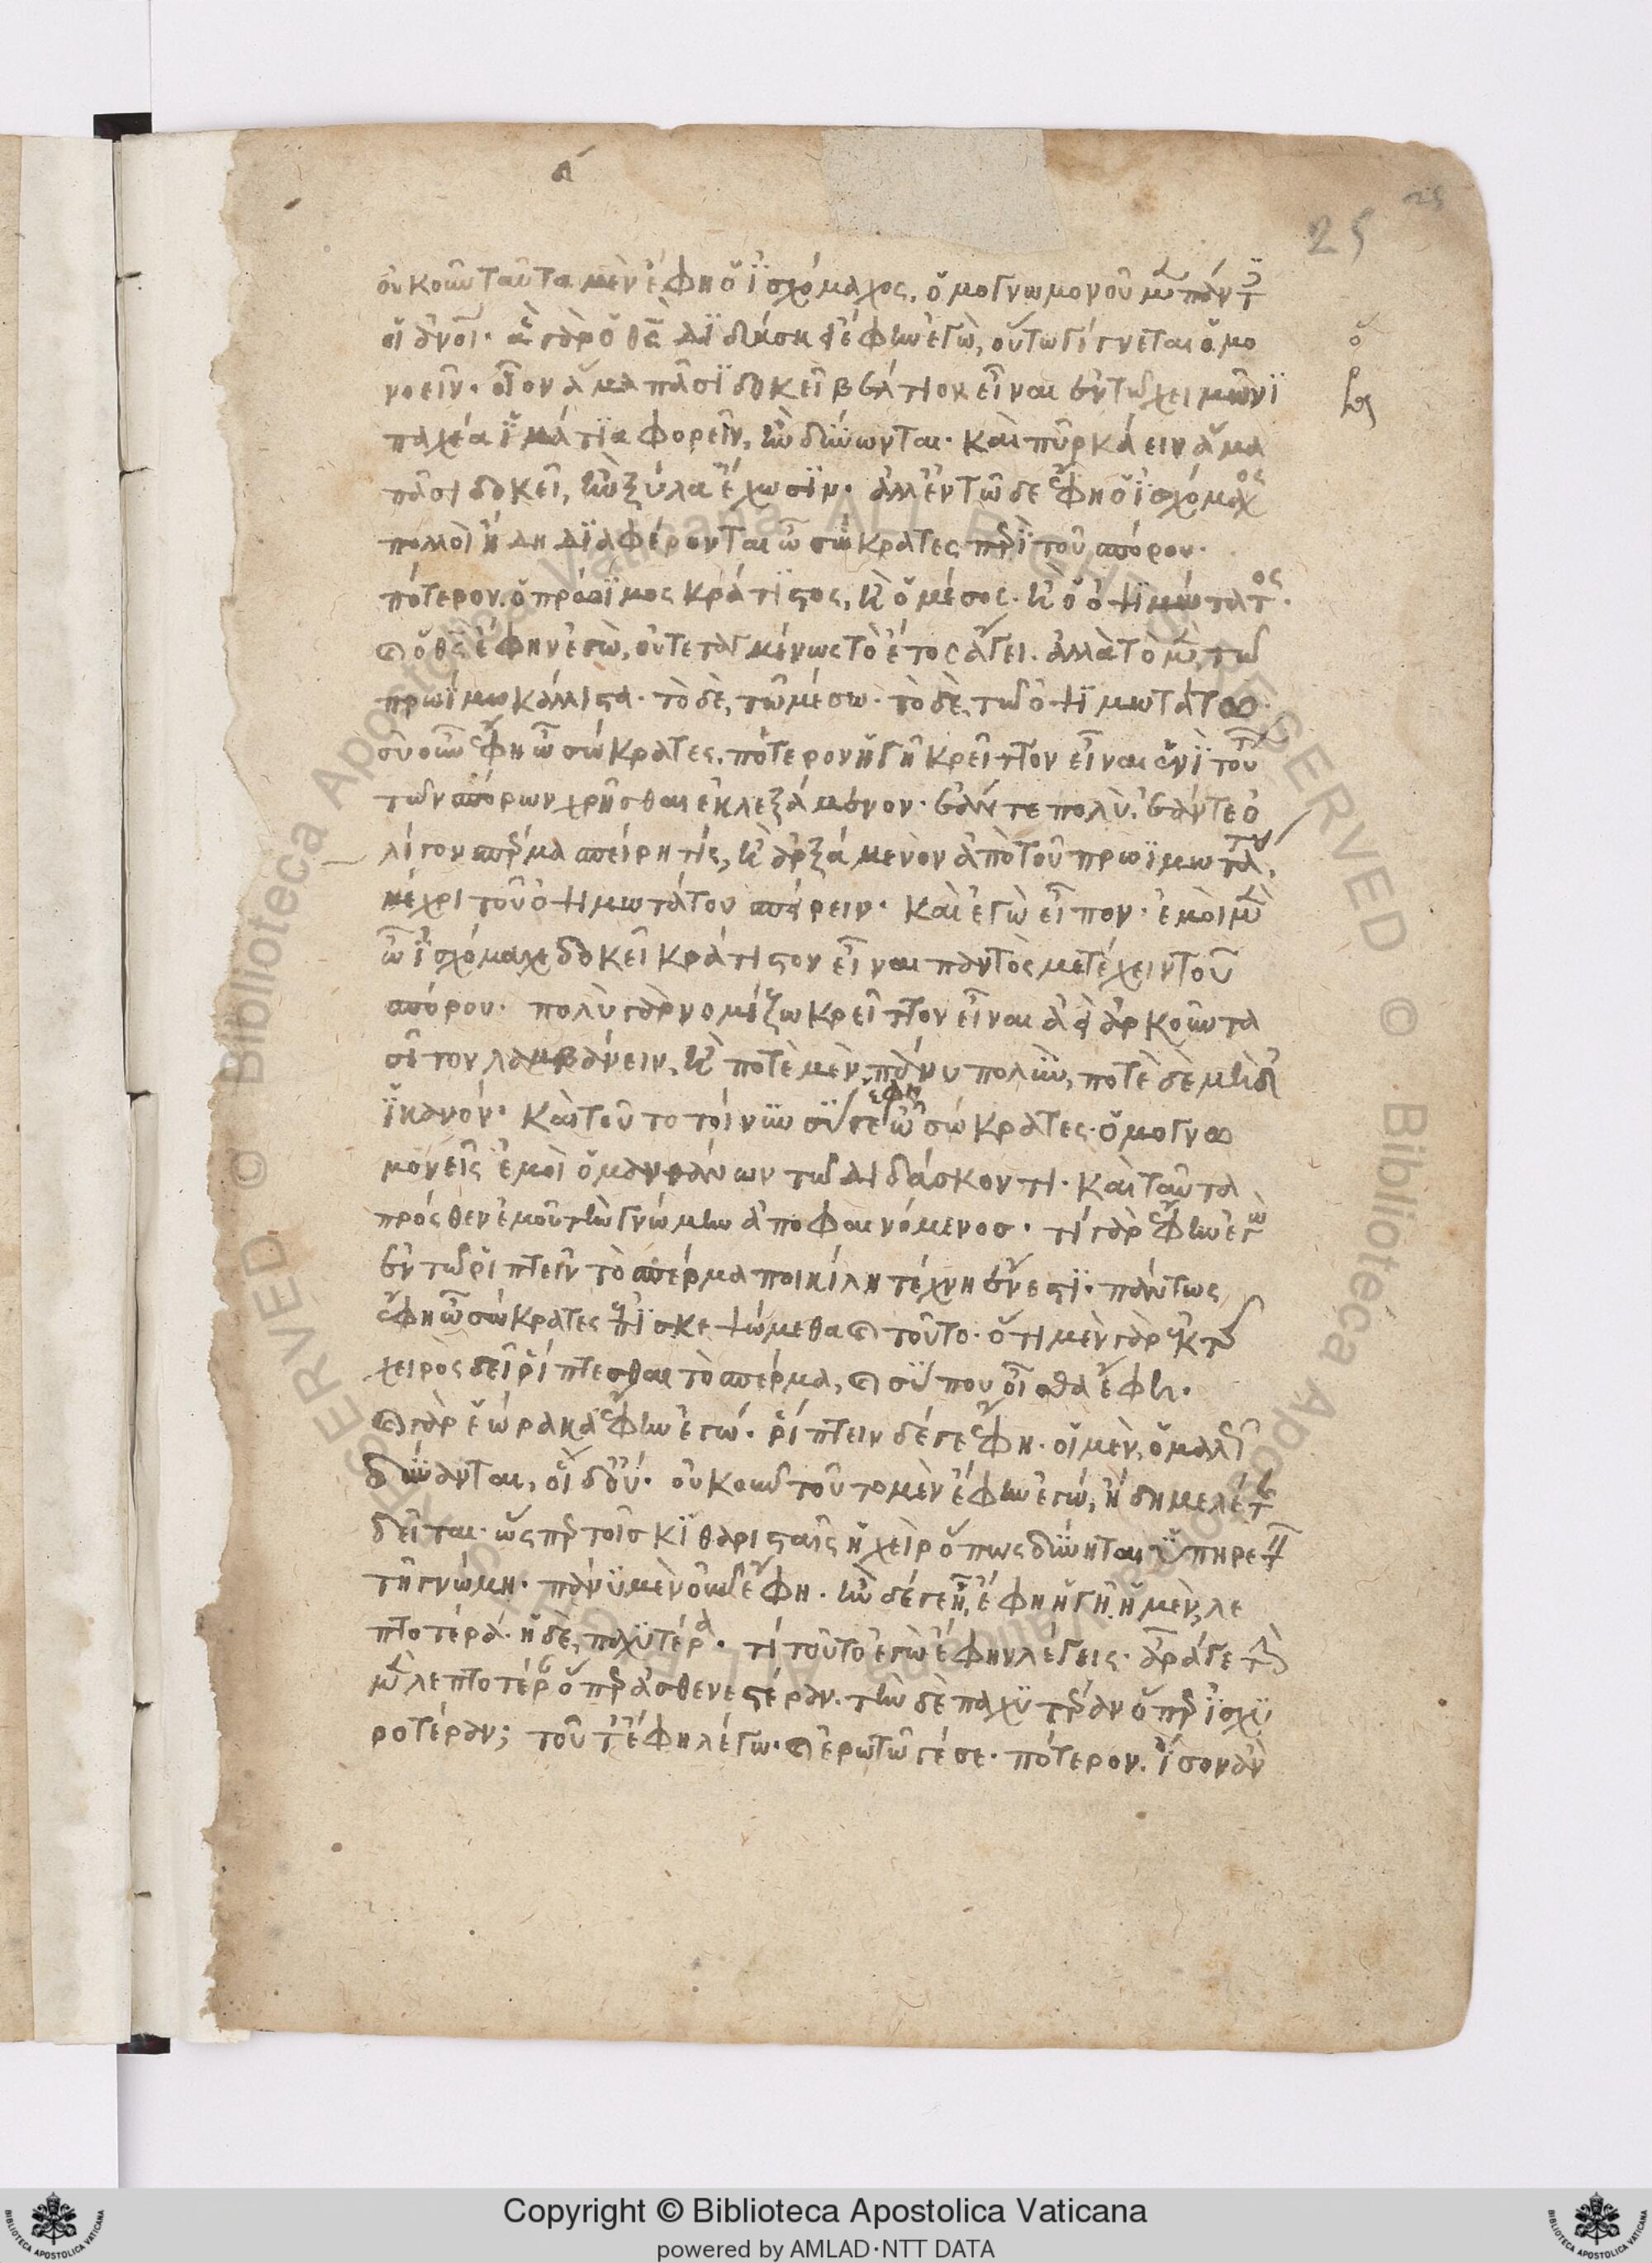 α
25
οὐκοῦν ταῦτα μὲν ἔφη ὁ ἰσχόμαχος, ὁμογνωμονοῦμεν πάντες
οἱ ἄνθρωποι· ἃ γὰρ ὁ θεὸς διδάσκει ἔφην ἐγὼ, οὕτω γίγνεται ὁμο
νοεῖν· οἷον ἅμα πᾶσι δοκεῖ βέλτιον εἶναι ἐν τῷ χειμῶνι
παχέα ἱμάτια φορεῖν, ἢν δύνωνται· καὶ πῦρ κάειν ἅμα
πᾶσι δοκεῖ, ἢν ξύλα ἔχωσιν· ἀλλ' ἐν τῷδε ἔφη ὁ ἰσχόμαχος
πολλοὶ ἤδη διαφέρονται ὦ σώκρατες περὶ τοῦ σπόρου·
πότερον ὁ πρώϊμος κράτιστος, ἢ ὁ μέσος· ἢ ὁ ὀψιμώτατος·
ὁ θεὸς ἔφην ἐγὼ, οὐ τεταγμένως τὸ ἔτος ἄγει. ἀλλὰ τὸ μὲν τῷ
πρωΐμω κάλλιστα· τὸ δὲ, τῷ μέσω· τὸ δὲ, τῷ ὀψιμωτάτω
σὺ οὖν ἔφη ὦ σώκρατες. πότερον ἡγῆ κρεῖττον εἶναι ἑνὶ τούτων
τῶν σπόρων χρῆσθαι ἐκλεξάμενον· ἐάν τε πολὺ, ἐάν τε ὀ
λίγον σπέρμα σπείρη τίς, ἢ ἀρξάμενον ἀπὸ τοῦ πρωϊμωτάτου
μέχρι τοῦ ὀψιμωτάτου σπείρειν· καὶ ἐγὼ εἶπον· ἐμοὶ μὲν
ὦ ἰσχόμαχε δοκεῖ κράτιστον εἶναι παντὸς μετέχειν τοῦ
σπόρου· πολὺ γὰρ νομίζω κρεῖττον εἶναι ἀεὶ ἀρκοῦντα
σῖτον λαμβάνειν, ἢ ποτὲ μὲν πάνυ πολὺν, ποτὲ δὲ μηδ'
ἱκανόν· καὶ τοῦτο τοίνυν σύ γε ἔφη ὦ σώκρατες· ὁμογνω
μονεῖς ἐμοὶ ὁ μανθάνων τῷ διδάσκοντι· καὶ ταῦτα
πρόσθεν ἐμοῦ τὴν γνώμην ἀποφαινόμενος· τί γὰρ ἔφην ἐγὼ
ἐν τῷ ῥιπτεῖν τὸ σπέρμα ποικίλη τέχνη ἔνεστι· πάντως
ἔφη ὦ σώκρατες ἐπισκεψώμεθα καὶ τοῦτο· ὅτι μὲν γὰρ ἐκ τῆς
χειρὸς δεῖ ῥίπτεσθαι τὸ σπέρμα, καὶ σύ που οἶσθα ἔφη.
καὶ γὰρ ἑώρακα ἔφην ἐγώ· ῥίπτειν δέ γε ἔφη· οἱ μὲν, ὁμαλῶς
δύνανται, οἱ δ' οὔ· οὐκοῦν τοῦτο μὲν ἔφην ἐγώ, ἤδη μελέτης
δεῖται· ὥσπερ τοῖς κιθαρισταῖς ἡ χεὶρ ὅπως δύνηται ὑπηρετεῖν
τῆ γνώμη· πάνυ μὲν οὖν ἔφη· ἢν δέ γε ᾖ, ἔφη ἡ γῆ, ἡ μὲν, λε
πτοτέρα· ἡ δὲ, παχυτέρα· τί τοῦτο ἐγὼ ἔφην λέγεις· ἆρά γε τὴν
μὲν λεπτοτέραν ὅπερ ἀσθενεστέραν· τὴν δὲ παχυτέραν ὅπερ ἰσχυ
ροτέραν; τοῦτ' ἔφη λέγω· καὶ ἐρωτῶ γέ σε· πότερον ἴσον ἂν
Copyright © Biblioteca Apostolica Vaticana
powered by AMLAD·NTT DATA